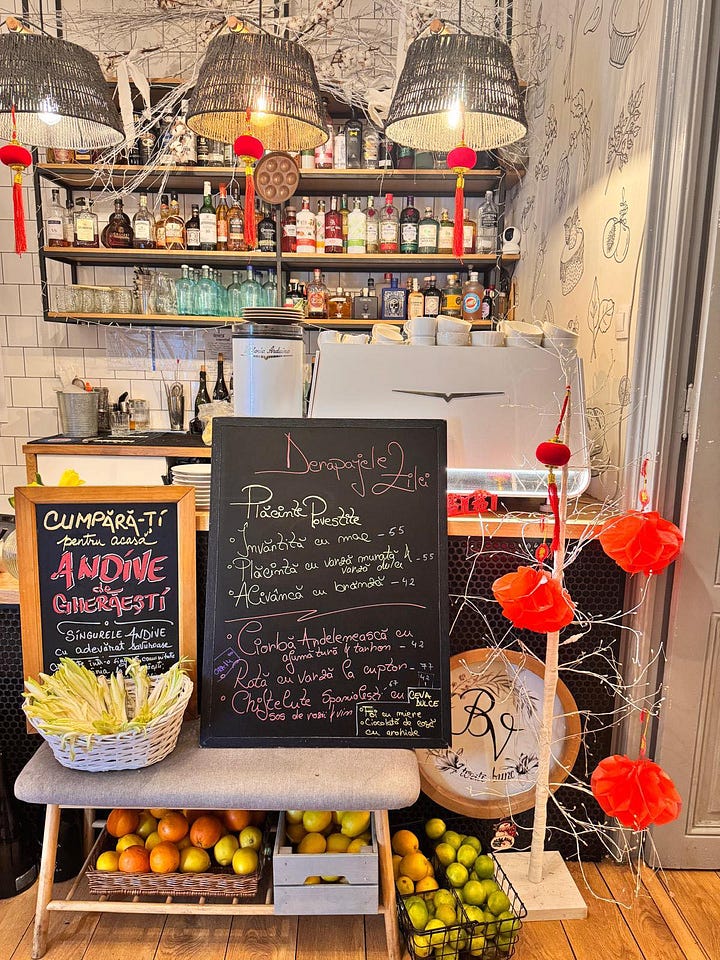 CUMPĂRĂ-ȚI
pentru acasă
ANDIVE
de
GHERĂEȘTI
SINGURELE ANDIVE
CU adevărat savuroase
Derapajele Zilei
Plăcinte Povestite
• Învârtită cu mac - 55
• Plăcintă cu varză murată /
varză dulce - 55
• Alivancă cu brânză - 42
• Ciorbă Ardelenească cu
afumătură și tarhon - 42
• Rață cu varză la cuptor - 77
• Chiftelute Spaniolești cu
sos de roșii și vin
67
CEVA
DULCE
• Foi cu miere
• Ciocolată de casă
cu arahide
BV